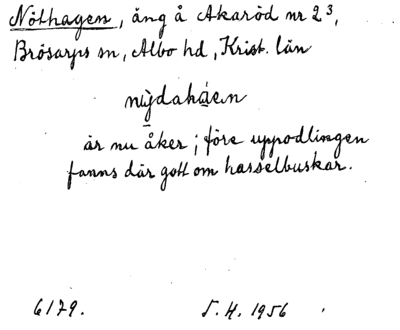 Nöthagen, äng å Akaröd nr 2³,
Brösarps sn, Albo hd, Krist. län
är nu åker; före uppodlingen
fanns där gott om hasselbuskar.
6179. S.H. 1956